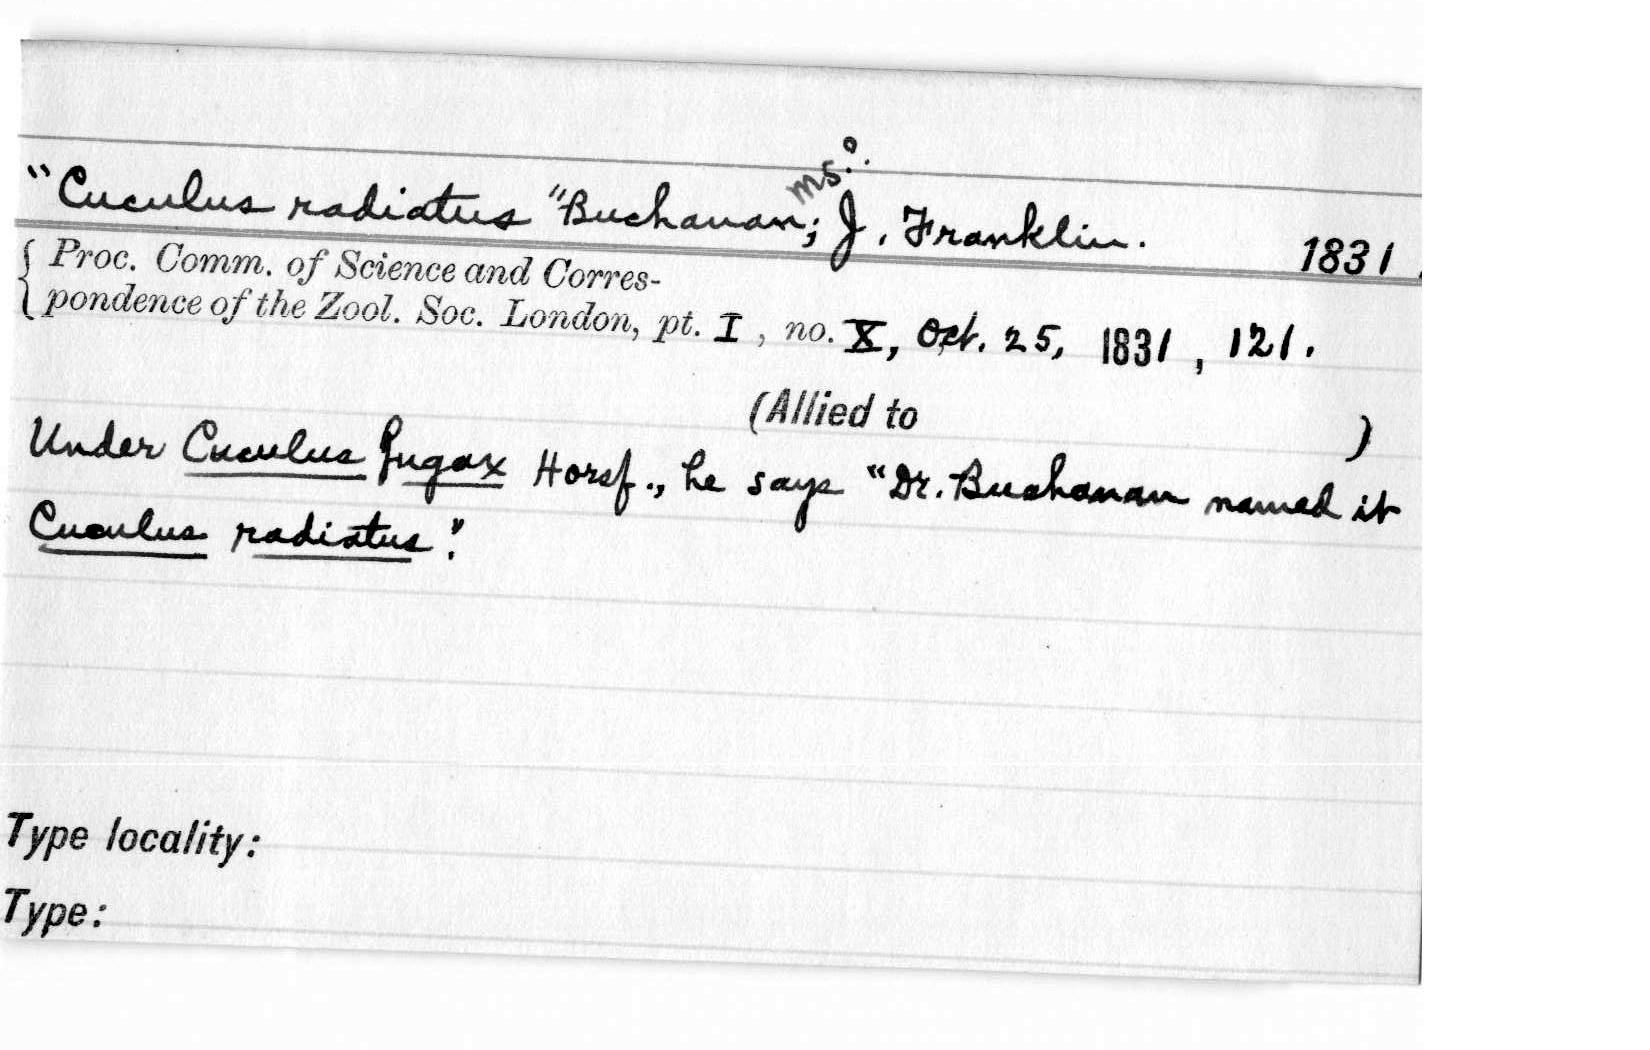 ms?.
"Cuculus radiatus "Buchanan; J. Franklin. 1831.
{ Proc. Comm. of Science and Corres-
pondence of the Zool. Soc. London, pt. I, no. X, Oct. 25, 1831, 121.
(Allied to )
Under Cuculus fugax Horsf., he says "Dr. Buchanan named it
Cuculus radiatus".
Type locality:
Type: